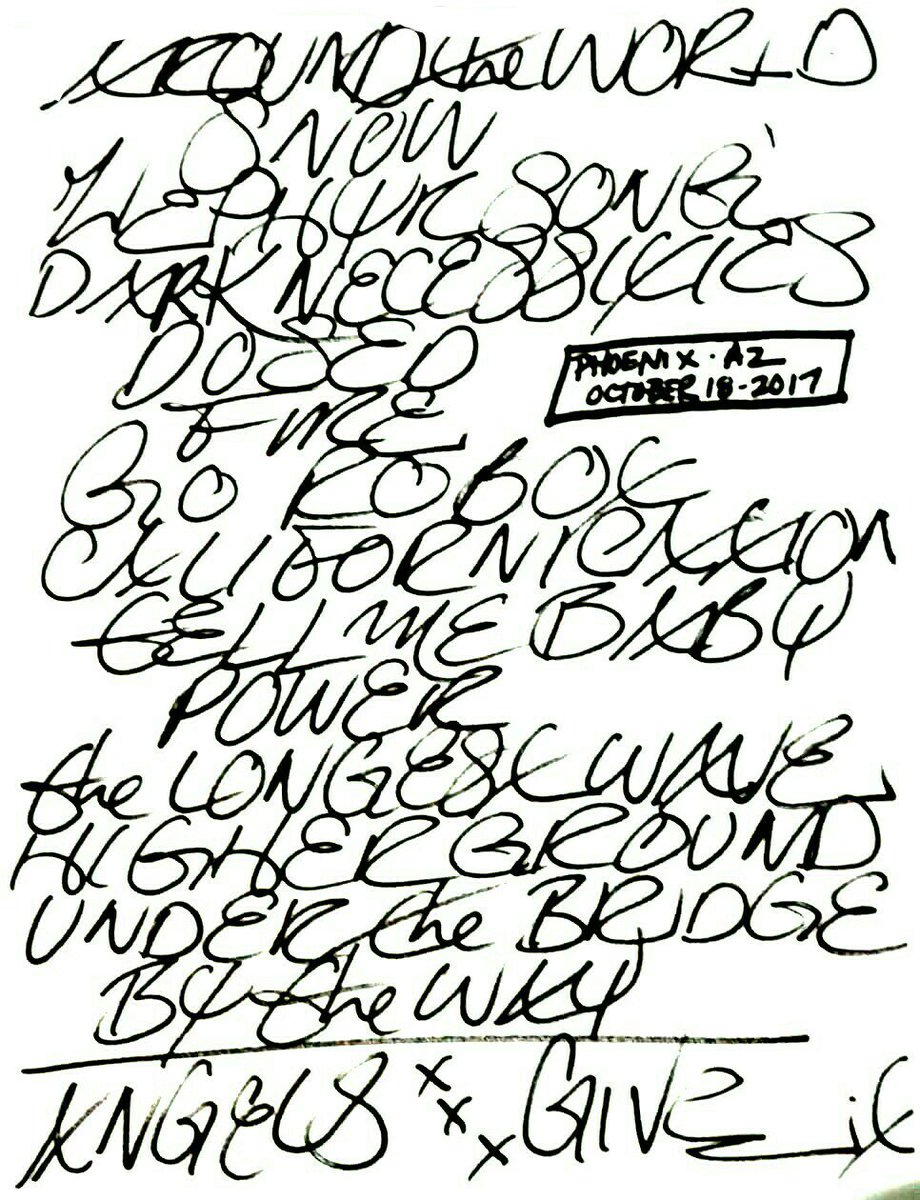 AROUND the WORLD
SNOW
ZEPHYR SONG
DARK NECESSITIES
DOSED
PHOENIX·AZ
OCTOBER 18-2017
FIRE
GO ROBOT
CALIFORNICATION
TELL ME BABY
POWER
the LONGEST WAVE
HIGHER GROUND
UNDER the BRIDGE
BY the WAY
ANGELS x x x GIVE it